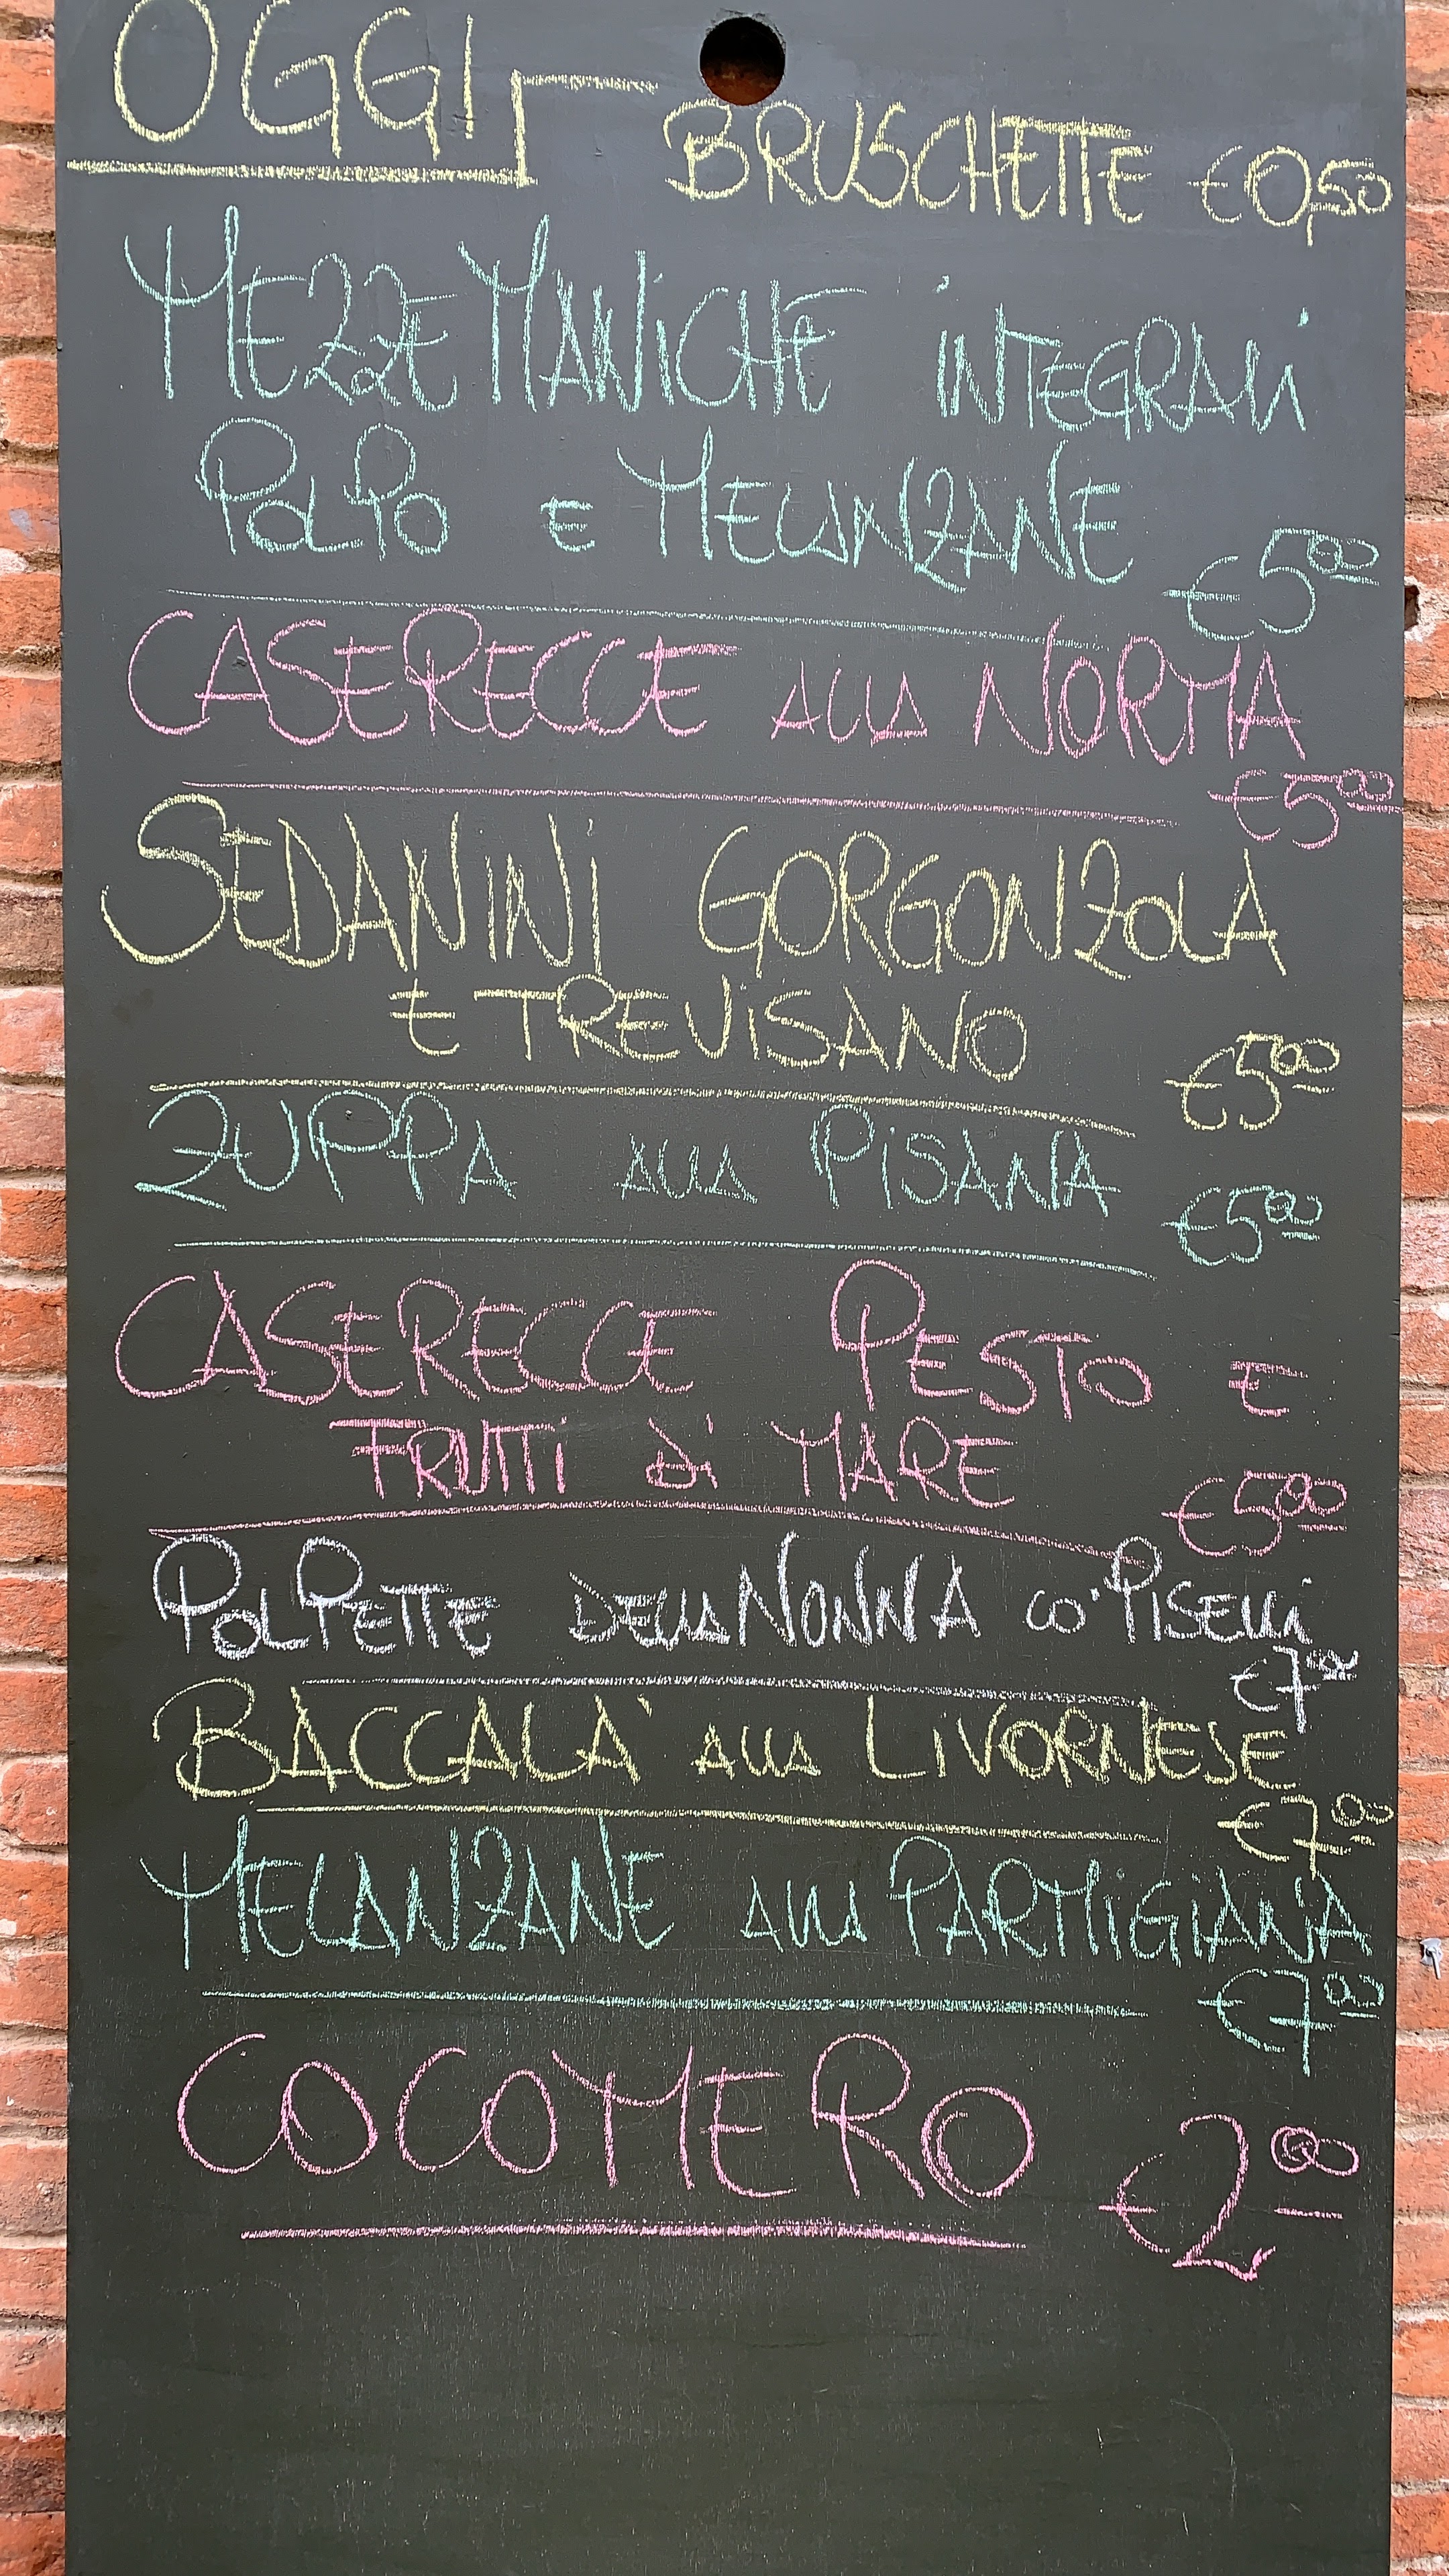 OGGI
BRUSCHETTE €0,50
MEZZE MANiCHE iNTEGRALi
POLPO E MELANZANE
€5,00
CASERECCE ALLA NORMA
€5,00
SEDANiNi GORGONZOLA
E TREViSANO
€5,00
ZUPPA ALLA PiSANA
€5,00
CASERECCE PESTO E
FRUTTi di MARE
€5,00
POLPETTE DELLA NONNA CO' PiSELLi
€7,00
BACCALA' ALLA LiVORNESE
€7,00
MELANZANE ALLA PARMiGiANA
€7,00
COCOMERO €2,00